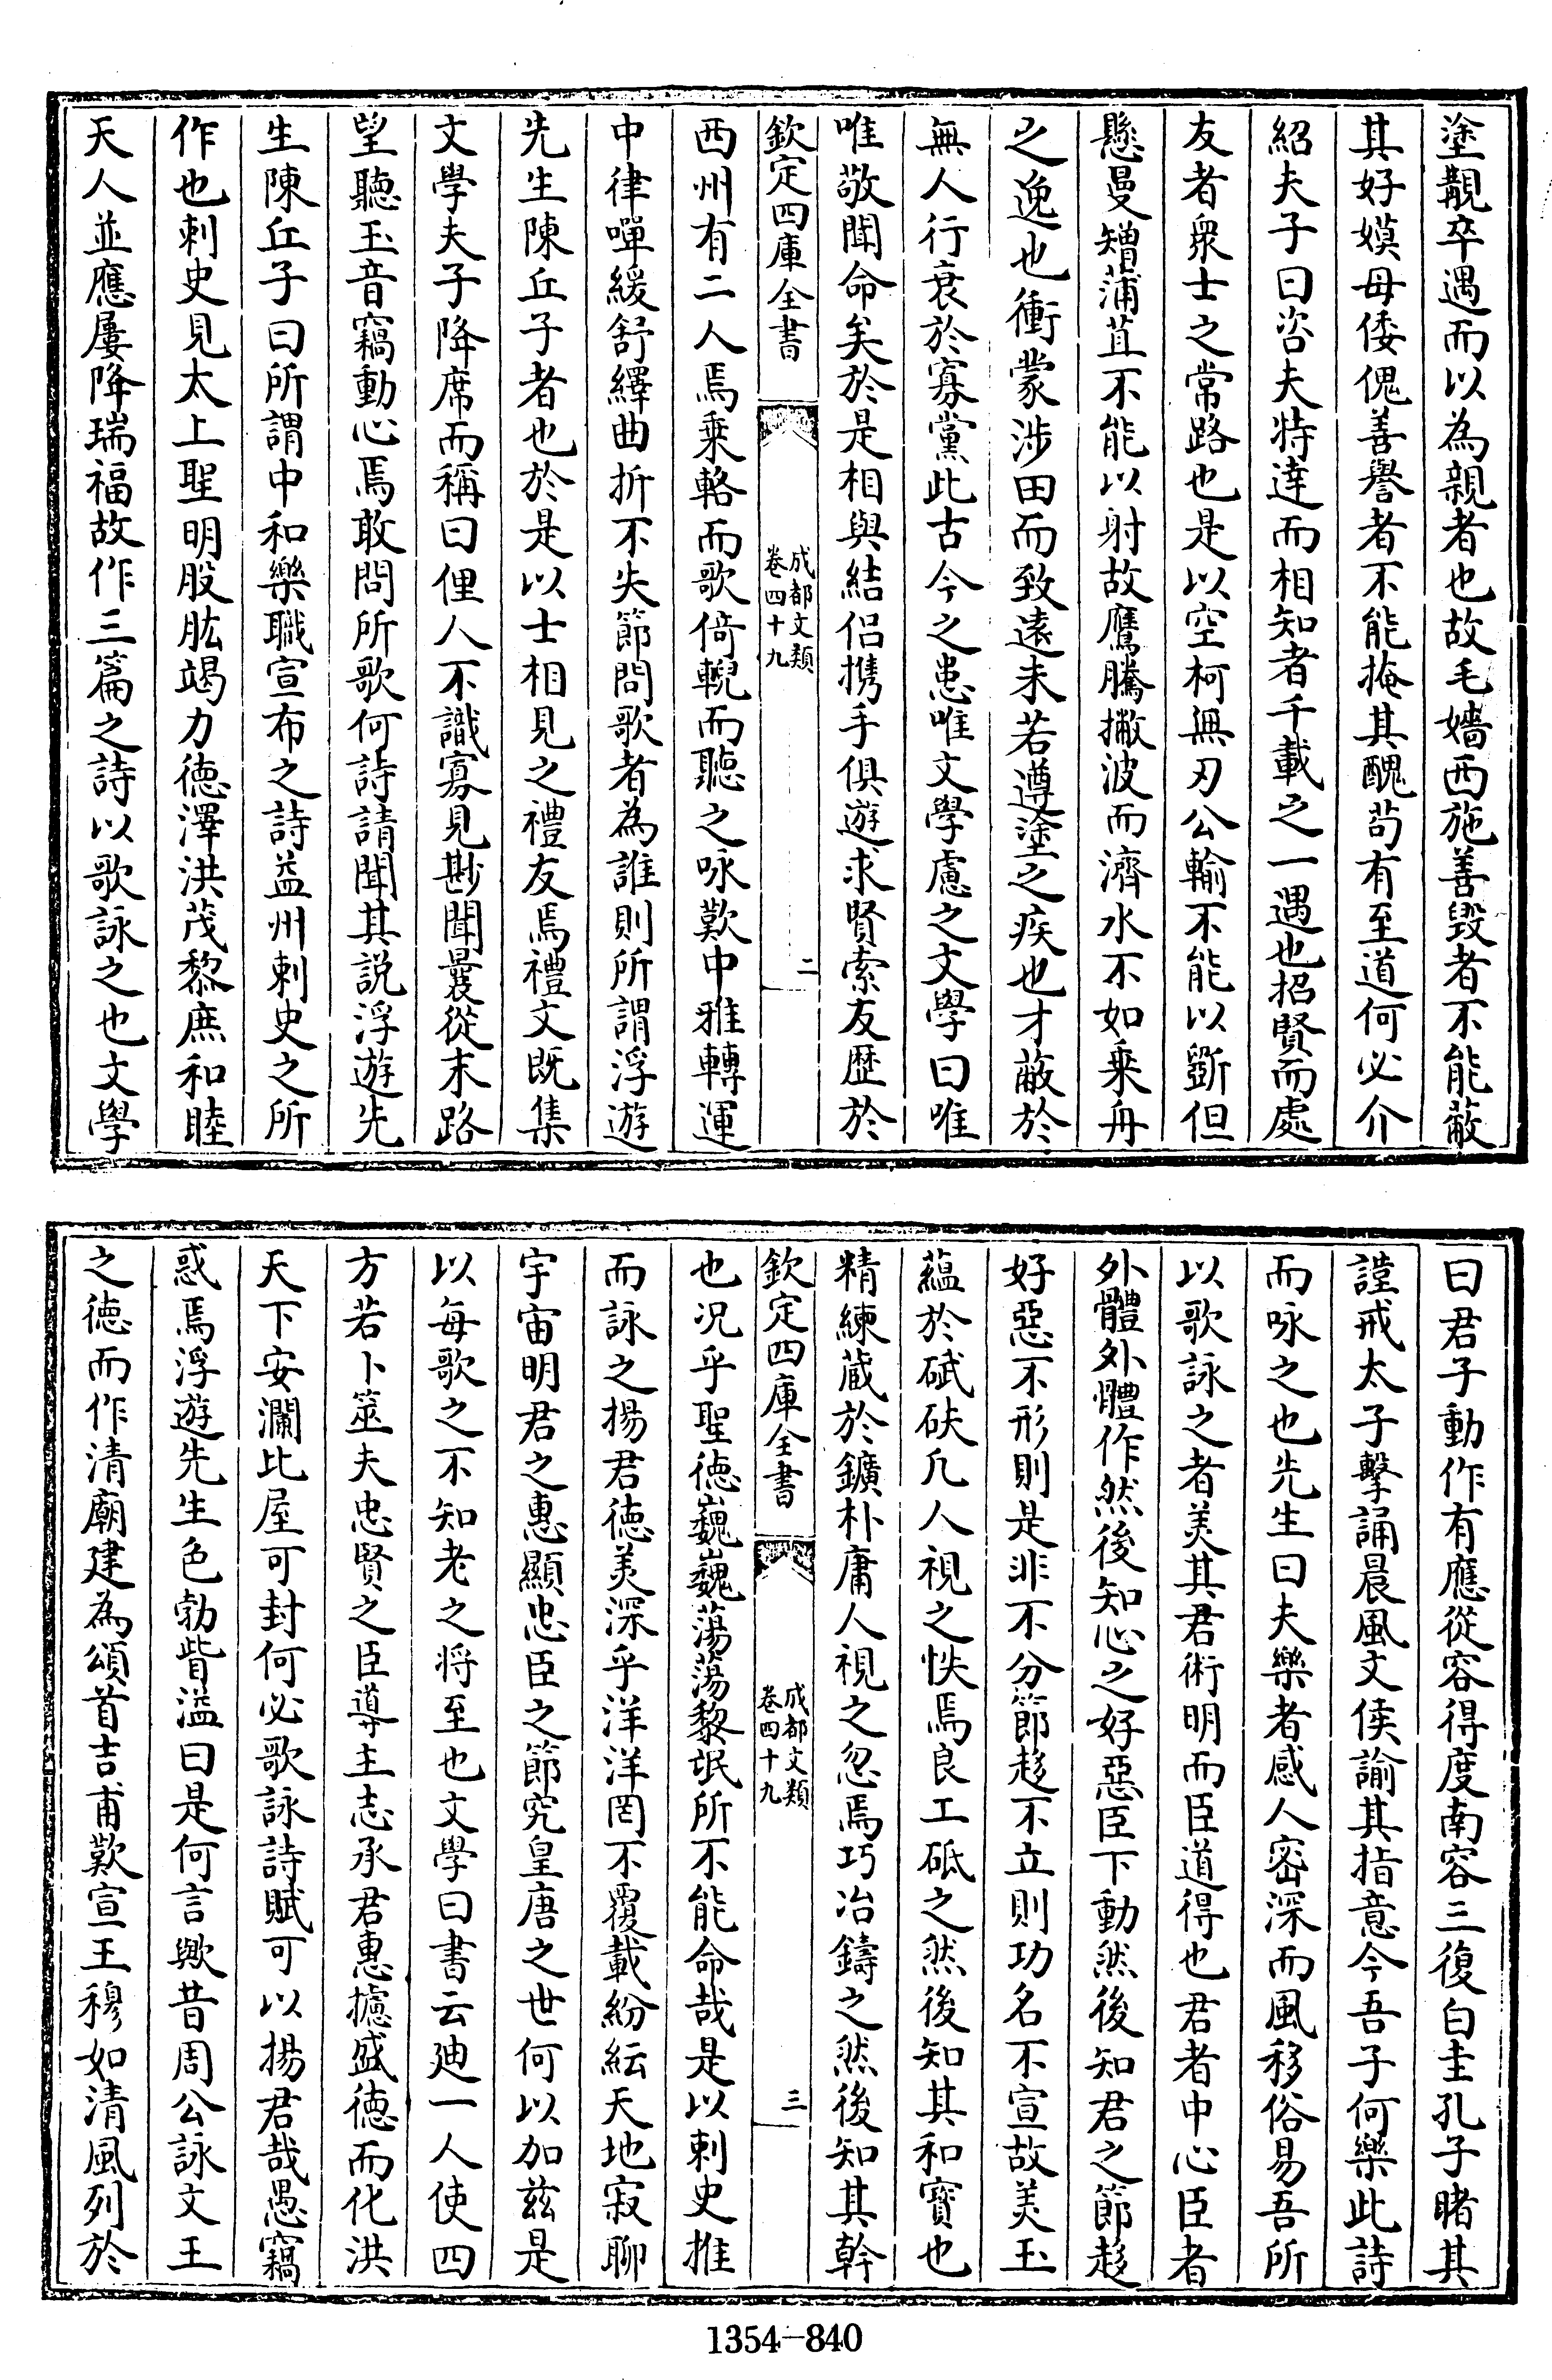 塗覯卒遇而以為親者也故毛嬙西施善毀者不能蔽
其好嫫母倭傀善譽者不能掩其醜苟有至道何必介
紹夫子曰咨夫特達而相知者千載之一遇也招賢而處
友者衆士之常路也是以空柯無刃公輸不能以斵但
懸曼矰蒲苴不能以射故鷹騰撇波而濟水不如乗舟
之逸也衝蒙涉田而致遠未若遵塗之疾也才蔽於
無人行衰於寡黨此古今之患唯文學慮之文學曰唯
唯敬聞命矣於是相與結侣携手俱遊求賢索友歴於
欽定四庫全書
成都文類
卷四十九
二
西州有二人焉乗輅而歌倚輗而聽之咏歎中雅轉運
中律嘽緩舒繹曲折不失節問歌者為誰則所謂浮遊
先生陳丘子者也於是以士相見之禮友焉禮文既集
文學夫子降席而稱曰俚人不識寡見尠聞曩從末路
望聽玉音竊動心焉敢問所歌何詩請聞其説浮遊先
生陳丘子曰所謂中和樂職宣布之詩益州刺史之所
作也刺史見太上聖明股肱竭力徳澤洪茂黎庶和睦
天人並應屢降瑞福故作三篇之詩以歌詠之也文學
曰君子動作有應從容得度南容三復白圭孔子睹其
謹戒太子擊誦晨風文侯諭其指意今吾子何樂此詩
而咏之也先生曰夫樂者感人密深而風移俗易吾所
以歌詠之者美其君術明而臣道得也君者中心臣者
外體外體作然後知心之好惡臣下動然後知君之節趍
好惡不形則是非不分節趍不立則功名不宣故美玉
蘊於碔砆凡人視之怢焉良工砥之然後知其和寶也
精練蔵於鑛朴庸人視之忽焉巧冶鑄之然後知其幹
欽定四庫全書
成都文類
卷四十九
三
也况乎聖徳巍巍蕩蕩黎氓所不能命哉是以刺史推
而詠之揚君徳美深乎洋洋罔不覆載紛紜天地寂聊
宇宙明君之惠顯忠臣之節究皇唐之世何以加兹是
以每歌之不知老之将至也文學曰書云廸一人使四
方若卜筮夫忠賢之臣導主志承君惠攄盛徳而化洪
天下安瀾比屋可封何必歌詠詩賦可以揚君哉愚竊
惑焉浮遊先生色勃眥溢曰是何言歟昔周公詠文王
之徳而作清廟建為頌首吉甫歎宣王穆如清風列於
1354-840